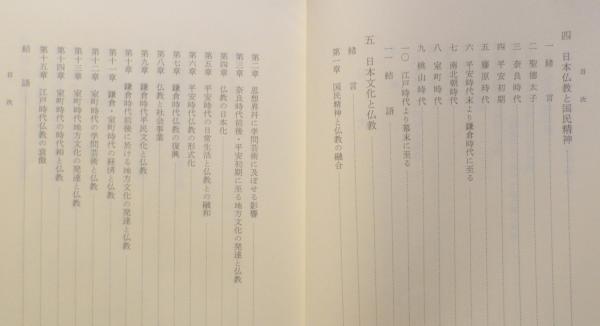 目次
四 日本仏教と国民精神
一 緒言
二 聖徳太子
三 奈良時代
四 平安初期
五 藤原時代
六 平安時代末より鎌倉時代に至る
七 南北朝時代
八 室町時代
九 桃山時代
一〇 江戸時代より幕末に至る
一一 結語
五 日本文化と仏教
緒言
第一章 国民精神と仏教の融合
第二章 思想界并に学問芸術に及ぼせる影響
第三章 奈良時代前後・平安初期に至る地方文化の発達と仏教
第四章 仏教の日本化
第五章 平安時代の日常生活と仏教との融和
第六章 平安時代仏教の形式化
第七章 鎌倉時代仏教の復興
第八章 仏教と社会事業
第九章 鎌倉時代平民文化と仏教
第十章 鎌倉時代前後に於ける地方文化の発達と仏教
第十一章 鎌倉・室町時代の経済と仏教
第十二章 室町時代の学問芸術と仏教
第十三章 室町時代地方文化の発達と仏教
第十四章 室町時代の時代相と仏教
第十五章 江戸時代仏教の衰微
結語
目次